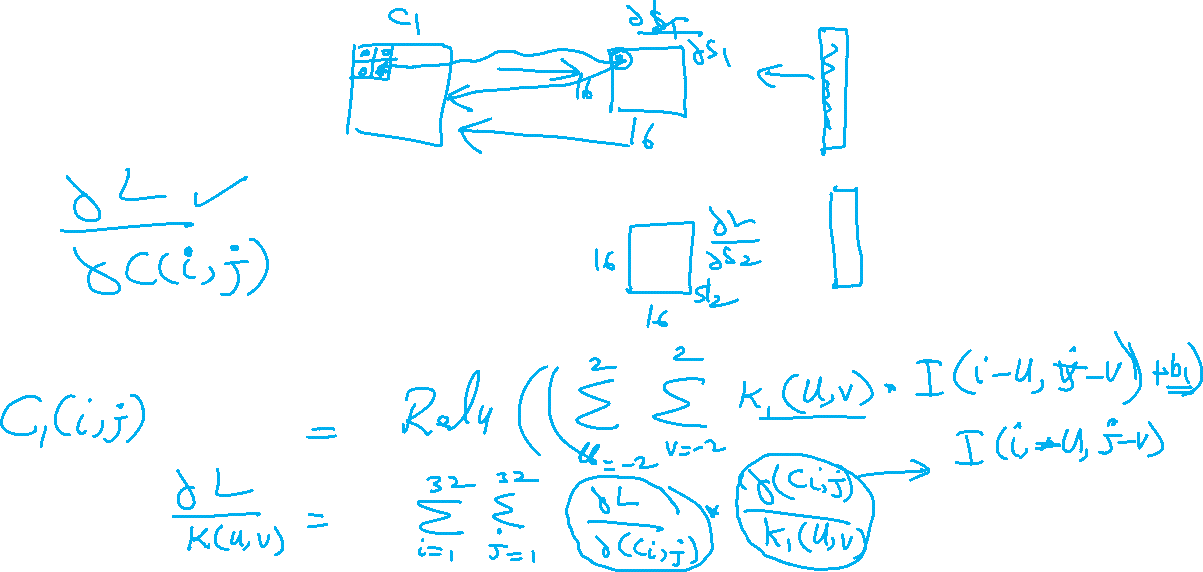 C₁
∂S₁
∂S₁
16
16
∂L ✓
∂C(i,j)
16
∂L
∂S₂
S₂
16
C₁(i,j) = Relu ((∑_{u=-2}^{2} ∑_{v=-2}^{2} K₁(u,v) * I(i-u, j-v)) + b₁)
∂L / K₁(u,v) = ∑_{i=1}^{32} ∑_{j=1}^{32} ∂L / ∂(C(i,j)) * ∂(C(i,j)) / K₁(u,v) → I(i-u, j-v)